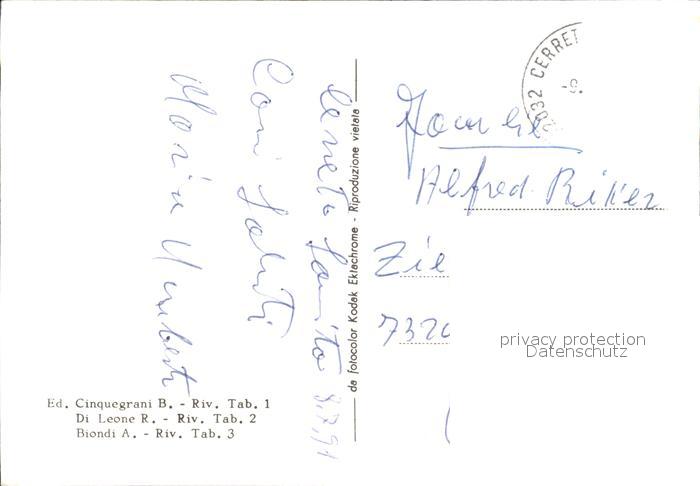 Cerreto Sannita 8.7.91
Cari Saluti
Maria Umberto
Ed. Cinquegrani B. - Riv. Tab. 1
Di Leone R. - Riv. Tab. 2
Biondi A. - Riv. Tab. 3
da fotocolor Kodak Ektachrome - Riproduzione vietata
CERRET
-9.
Alfred Riker
Zie
732
privacy protection
Datenschutz